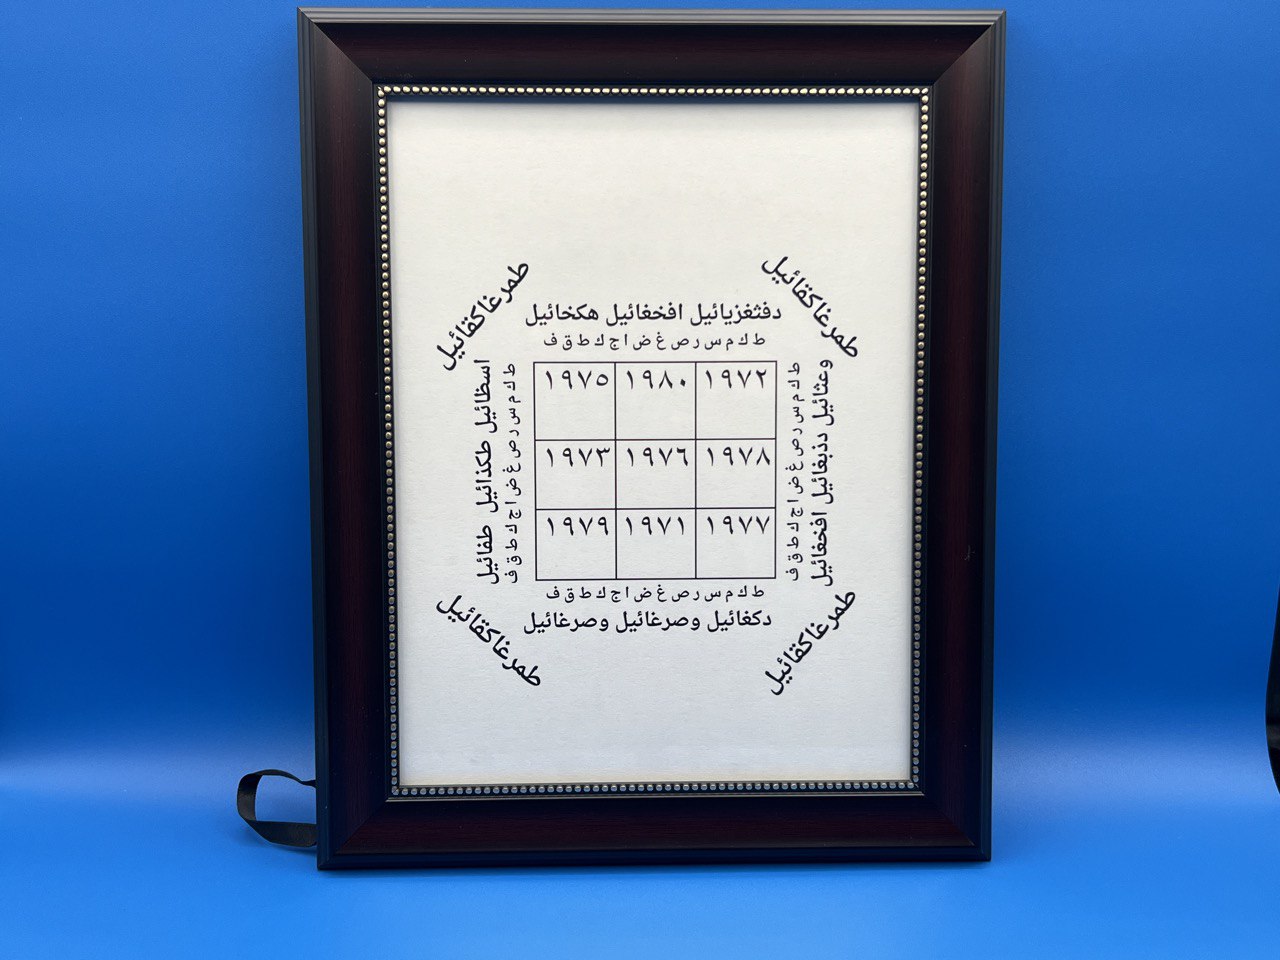 طمرغاكقائيل
طمرغاكقائيل
دفثغزيائيل افخغائيل هكخائيل
ط ك م س ر ص غ ض ا ج ك ط ق ف
وعثائيل دذبغائيل افخغائيل
ط ك م س ر ص غ ض ا ج ك ط ق ف
١٩٧٥ ١٩٨٠ ١٩٧٢
١٩٧٣ ١٩٧٦ ١٩٧٨
١٩٧٩ ١٩٧١ ١٩٧٧
ط ك م س ر ص غ ض ا ج ك ط ق ف
اسظائيل طكذائيل طفائيل
ط ك م س ر ص غ ض ا ج ك ط ق ف
دكغائيل وصرغائيل وصرغائيل
طمرغاكقائيل
طمرغاكقائيل